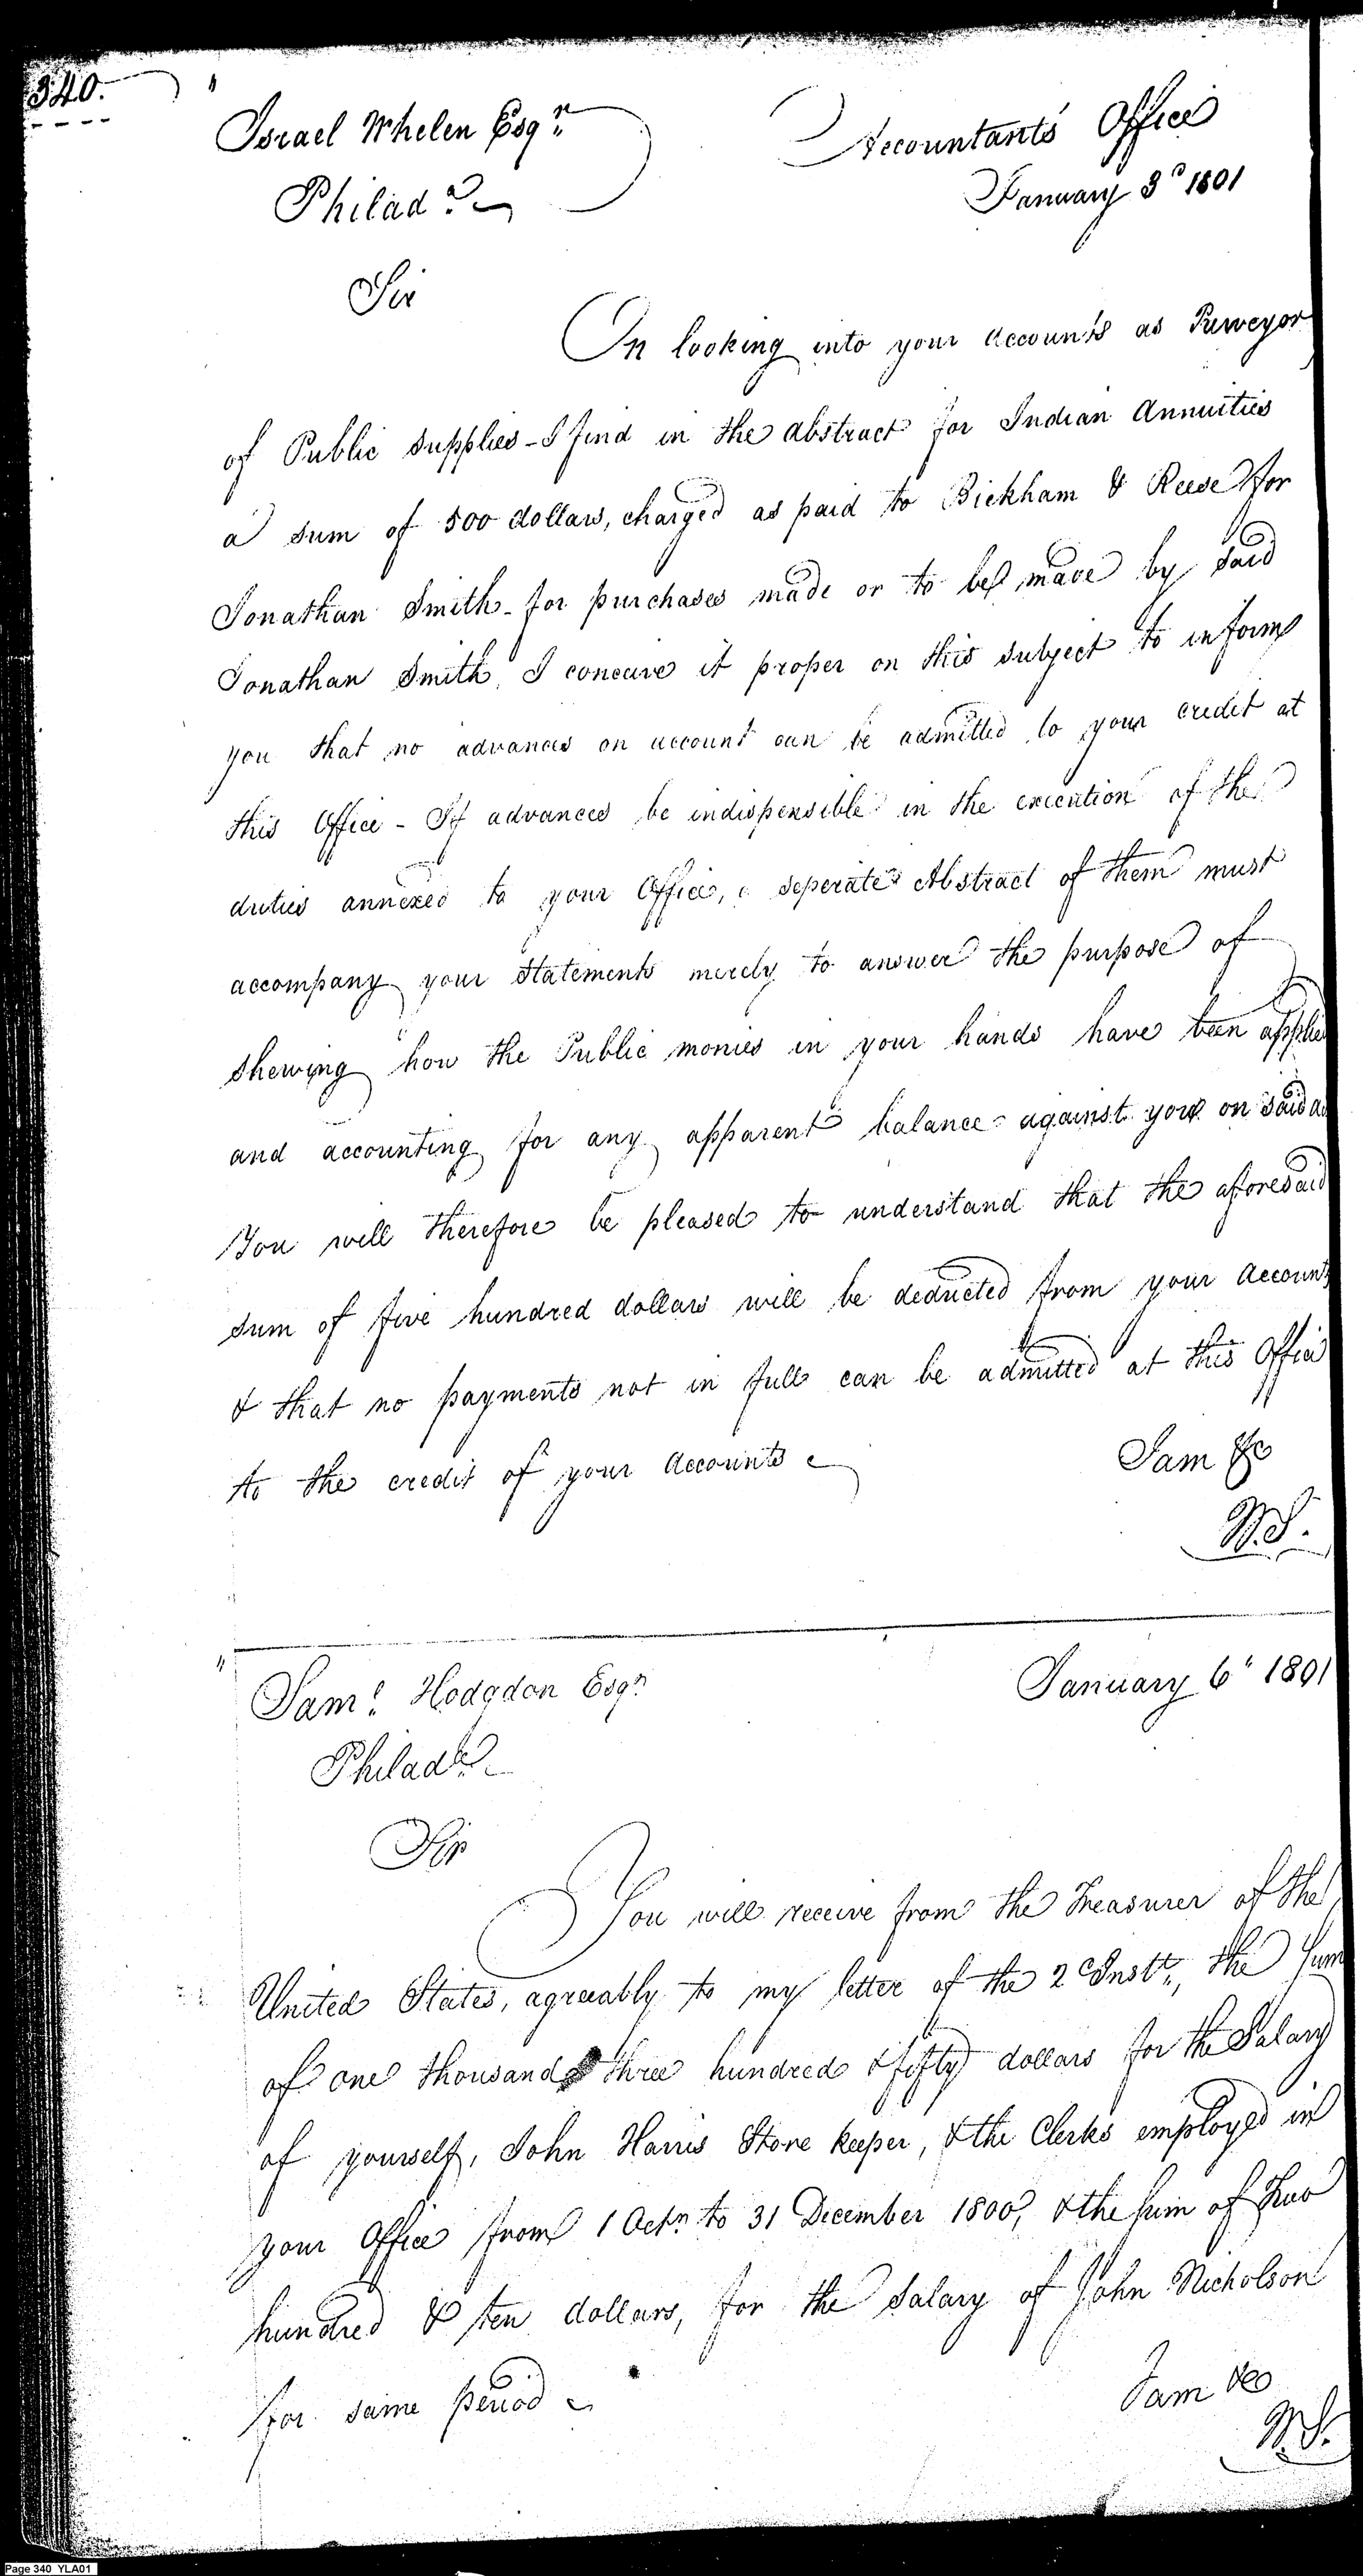 340.
Israel Whelen Esqr.
Accountants Office
Philada.
January 3d 1801
Sir
On looking into your accounts as Purveyor
of Public supplies - I find in the abstract for Indian Annuities
a sum of 500 dollars, charged as paid to Bickham & Reese for
Jonathan Smith - for purchases made or to be made by said
Jonathan Smith. I conceive it proper on this subject to inform
you that no advances on account can be admitted to your credit at
this Office - If advances be indispensible in the execution of the
duties annexed to your Office, a seperate Abstract of them must
accompany your statements merely to answer the purpose of
shewing how the Public monies in your hands have been applie
and accounting for any apparent balance against you on said a
You will therefore be pleased to understand that the aforesaid
sum of five hundred dollars will be deducted from your Accounts
& that no payments not in full can be admitted at this Office
to the credit of your Accounts
I am &c
W.S.
Saml. Hodgdon Esqr.
January 6th 1801
Philada.
Sir
You will receive from the Treasurer of the
United States, agreeably to my letter of the 2d Instt., the sum
of one thousand three hundred & fifty dollars for the Salary
of yourself, John Harris Store keeper, & the Clerks employed in
your Office from 1 Octr. to 31 December 1800, & the sum of Two
hundred & ten dollars, for the Salary of John Nicholson
for same period
I am &c
W.S.
Page 340 YLA01